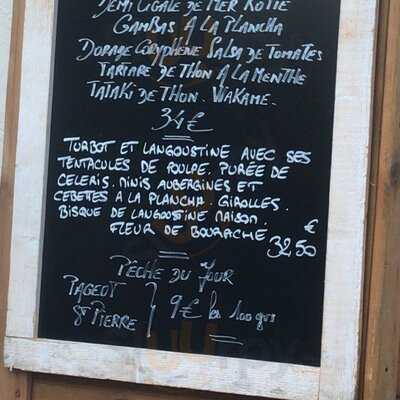 DEMI CIGALE DE MER ROTIE
GAMBAS A LA PLANCHA
DORADE CORYPHENE SALSA DE TOMATES
TARTARE DE THON A LA MENTHE
TATAKI DE THON. WAKAME.
34€
TURBOT ET LANGOUSTINE AVEC SES
TENTACULES DE POULPE. PURÉE DE
CELERIS. MINIS AUBERGINES ET
CEBETTES A LA PLANCHA. GIROLLES.
BISQUE DE LANGOUSTINE MAISON.
FLEUR DE BOURACHE 32,50 €
PÊCHE DU JOUR
PAGEOT
ST PIERRE } 9€ les 100 grs